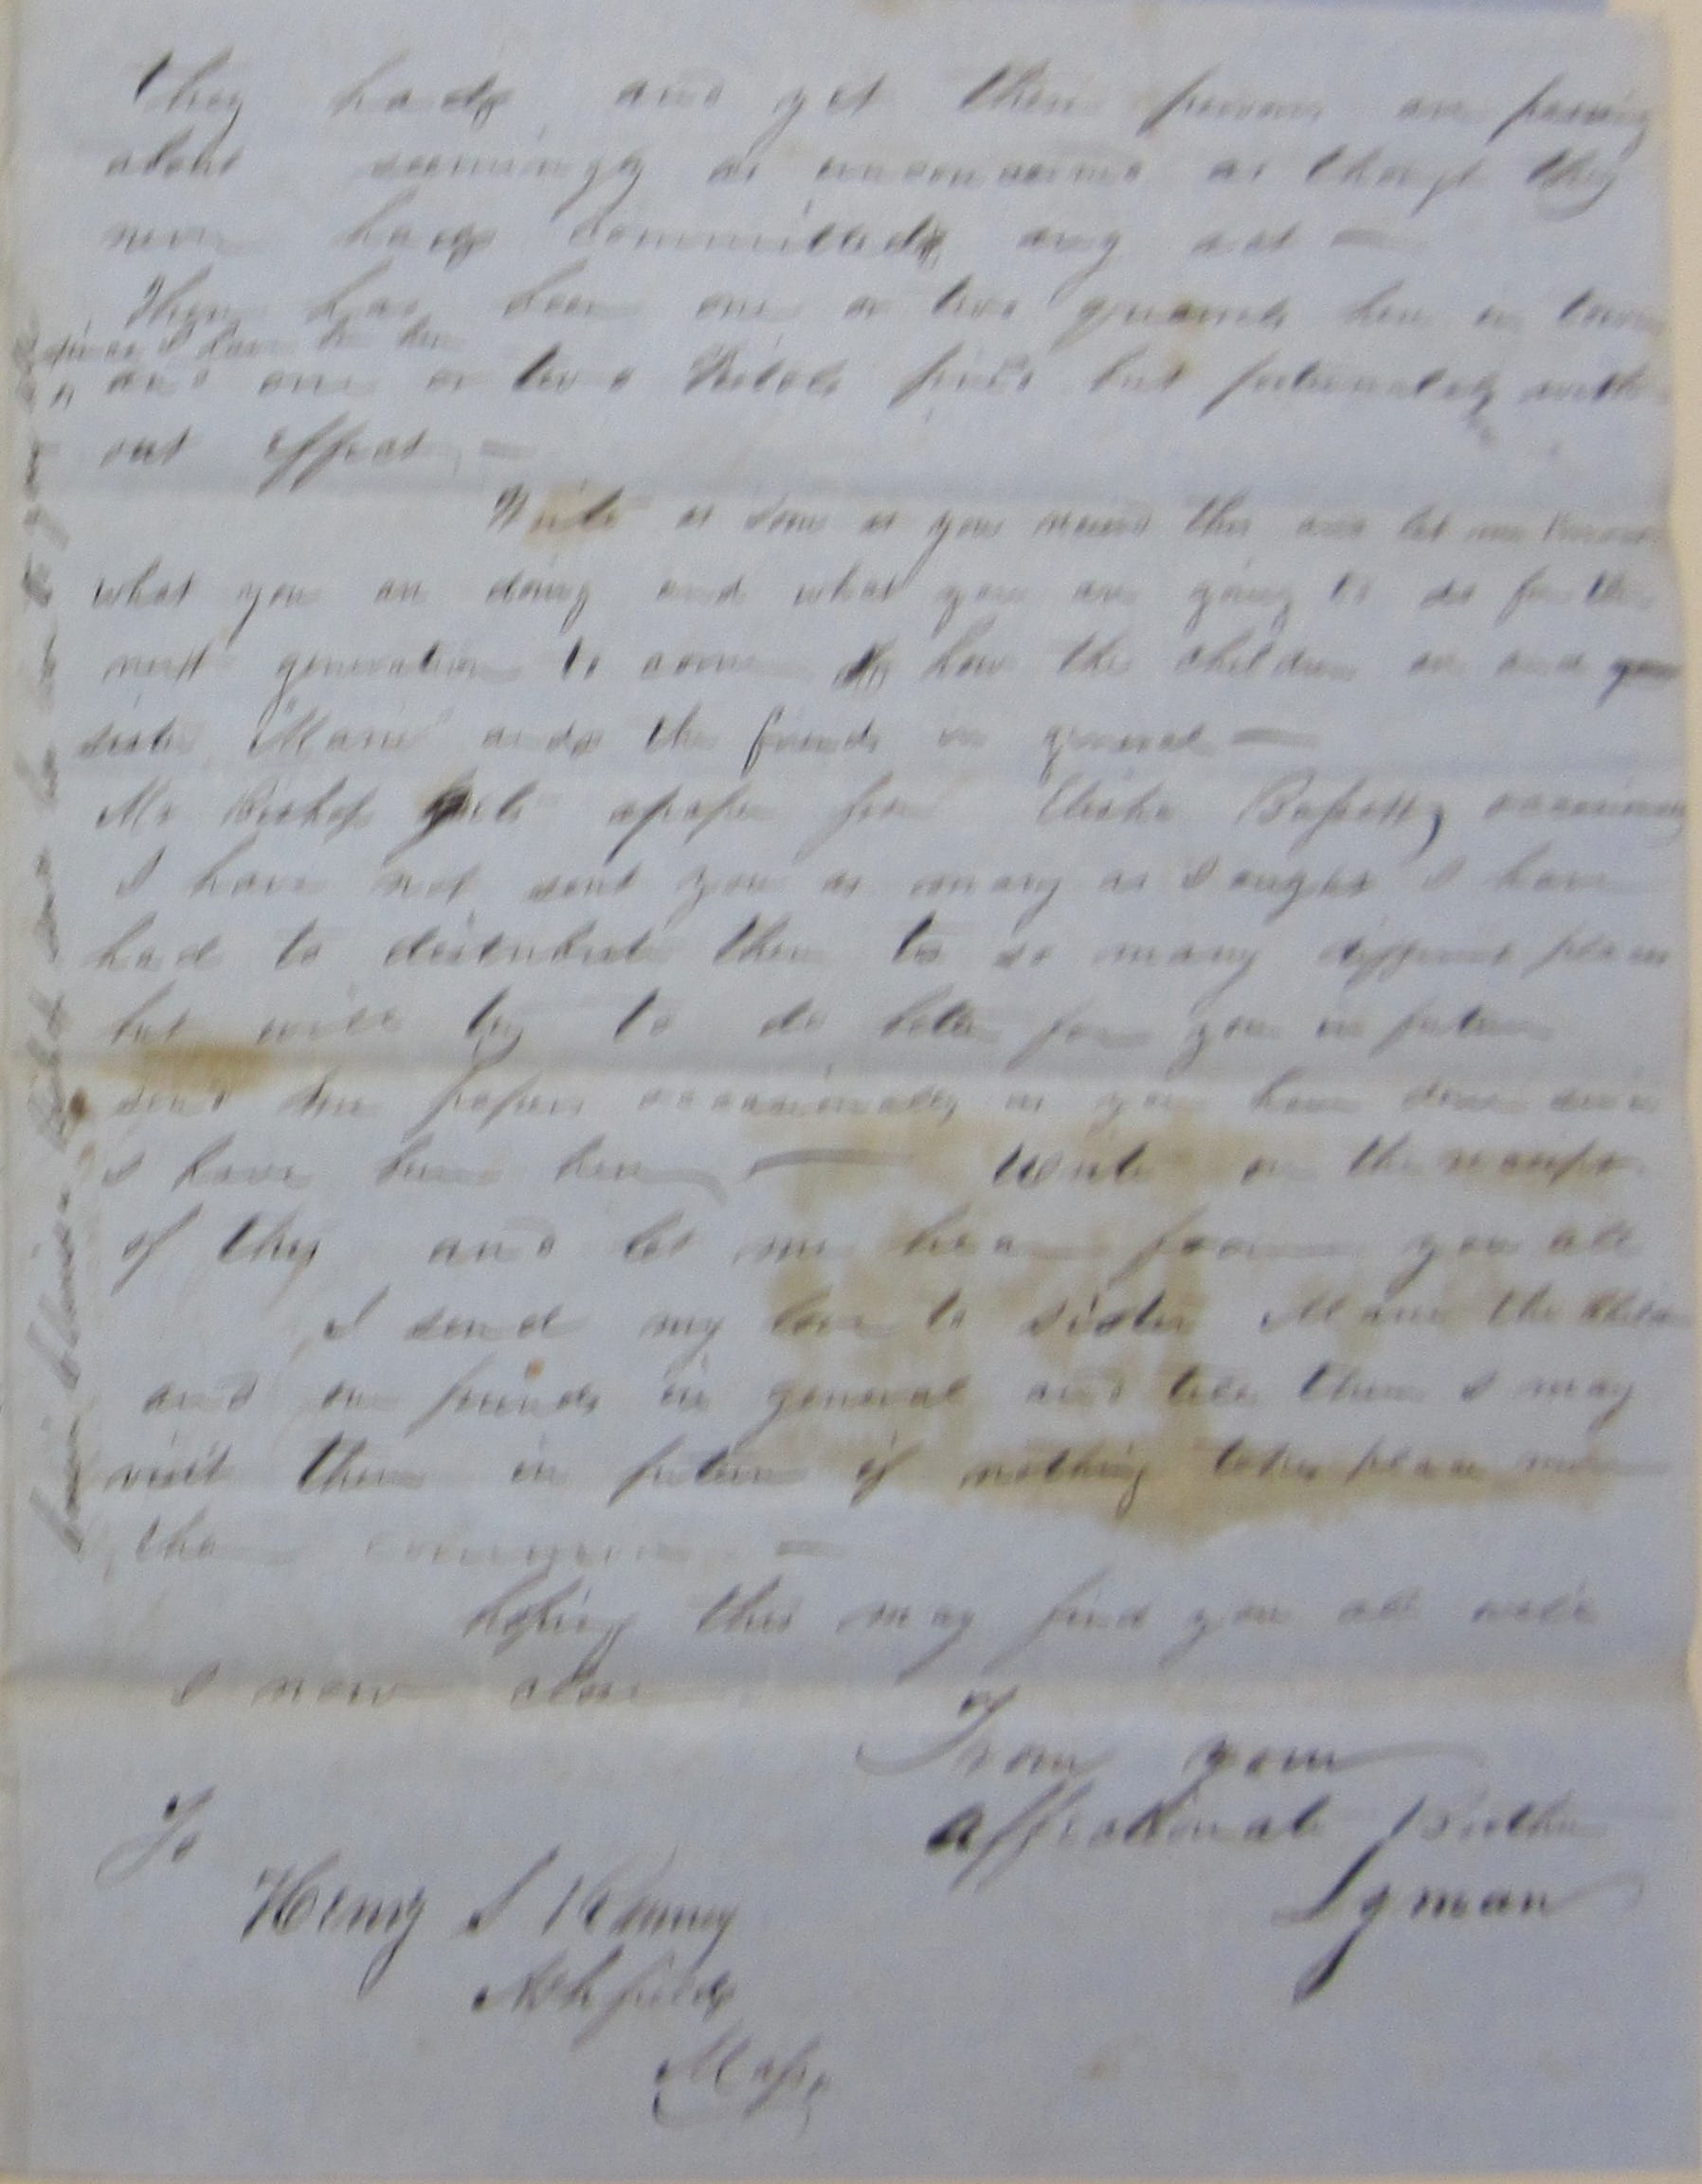 they had and yet these persons are passing
about seemingly as unconcerned as though they
never had committed any act —
There has been one or two quarrels here in town
since I have been here
and one or two Pistols fired but fortunately with
out effect —
Write as soon as you receive this and let me know
what you are doing and what you are going to do for the
next generation to come how the children are and your
sister "Marie" and the friends in general —
Mr Bishop gets a paper from Elisha Bassett, occasionaly
I have not sent you as many as I ought I have
had to distribute them to so many different places
but will try to do better for you in future
send me papers occasionaly as you have done since
I have been here — Write on the receipt
of this and let me hear from you all
I send my love to sister Marie the children
and our friends in general and tell them I may
visit them in future if nothing takes place more
than common —
hoping this may find you all well
I now close
From your
Affectionate Brother
Lyman
To
Henry S Ranney
Ashfield
Mass